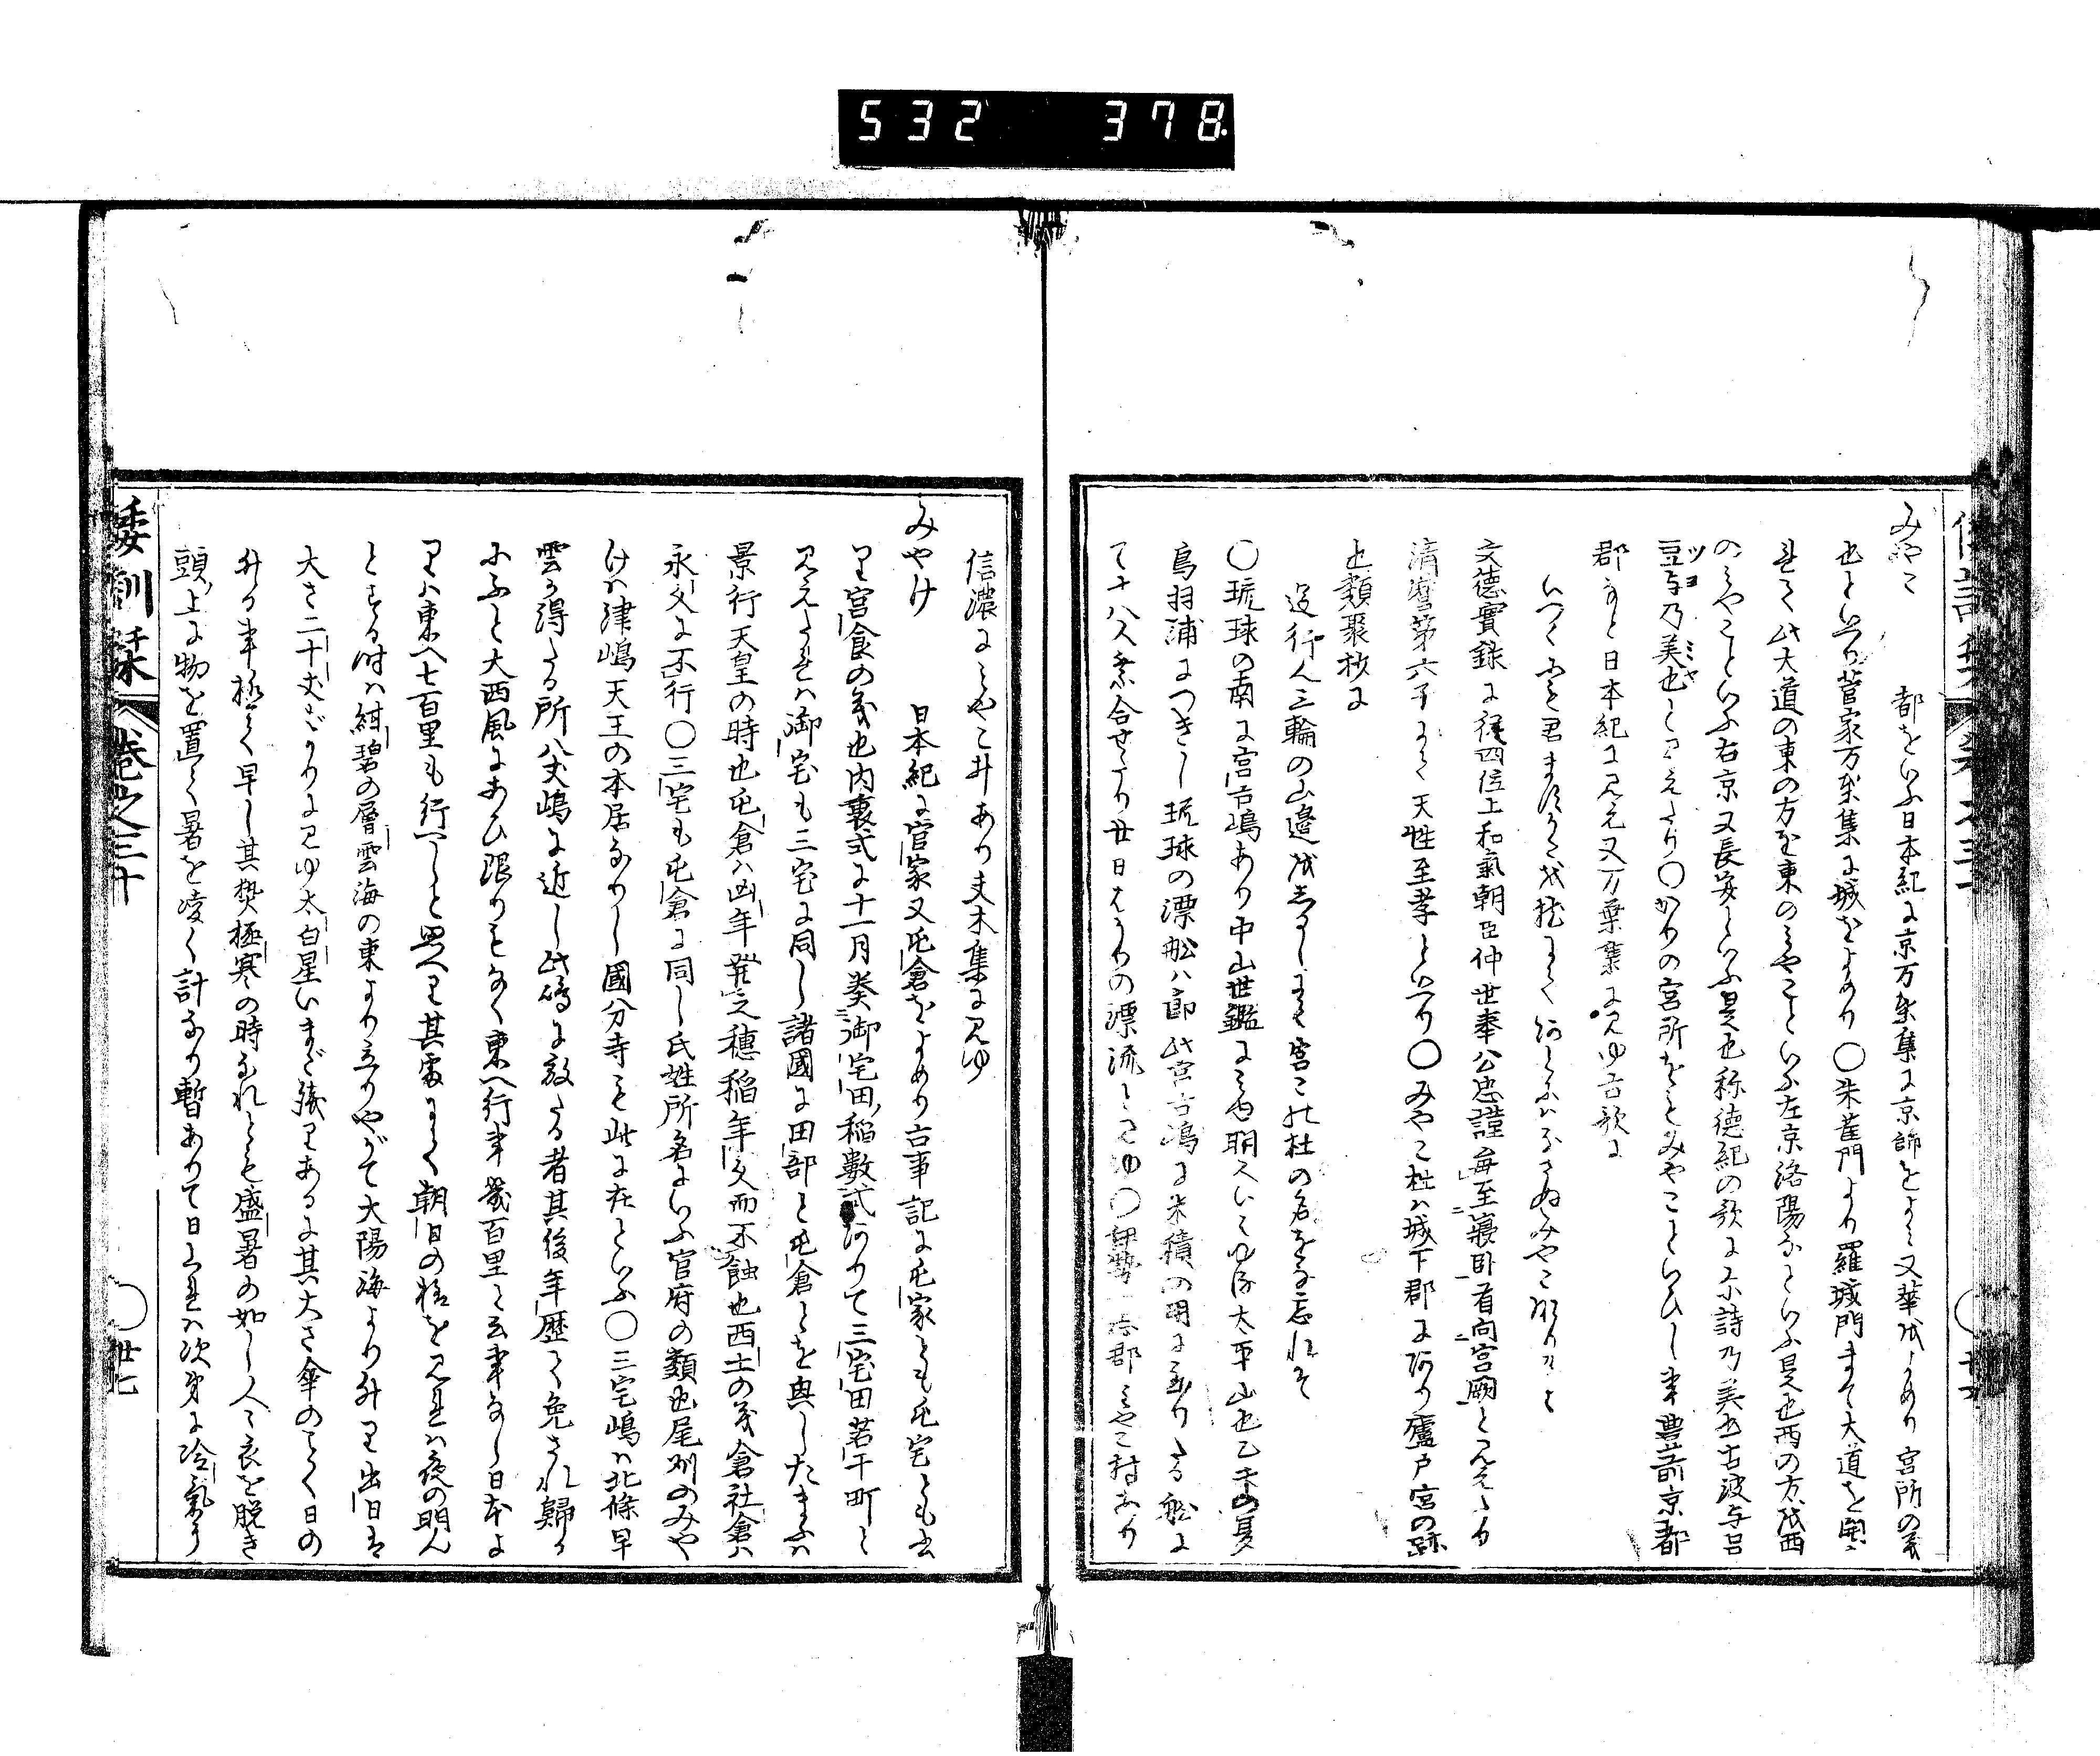 532 378
みやこ 都をいふ日本紀に京万葉集に京師をよみ又華をよめり宮所の義
也といへり菅家万葉集に城をよめり〇朱雀門より羅城門まて大道を開く
されは此大道の東の方を東のみやこといふ左京洛陽なといふ是也西の方を西
のみやこといふ右京又長安といふ是也称徳紀の歌に不詩乃美也古波与呂
豆与乃美也とみえたり〇かりの宮所をもみやこといひし事豊前京都
ツヨ ミヤ
郡なと日本紀に見え又万葉集に見ゆ古歌に
文徳實録に從四位上和氣朝臣仲世奉公忠謹毎至寝卧首向宮闕とみえたり
清麿第六子にて天性至孝といへり〇みやこ杜は城下郡にあり廬戸宮の跡
也類聚抄に
道行人三輪の山邉をしるしにて宮この杜の名をな忘れそ
〇琉球の南に宮古嶋あり中山世鑑にみゆ明人いはゆる太平山也乙未の夏
鳥羽浦につきし琉球の漂船は即此宮古嶋に米積の用に至りたる船に
て十八人乗合せたり廿日はかりの漂流とみゆ〇伊勢 志郡みやこ村あり
信濃にみやこ井あり夫木集に見ゆ
みやけ 日本紀に官家又屯倉をよめり古事記に屯家とも屯宅とも書
り宮食の義也内裏式に十一月奏御宅田稲數式ありて三宅田若干町と
見えたれは御宅も三宅に同し諸國に田部と屯倉とを興したまふは
景行天皇の時也屯倉は凶年発之穗稲年久而不蝕也西土の義倉社倉は
永久に不行〇三宅も屯倉に同し氏姓所名にいふ官府の類也尾州のみや
けは津嶋天王の本居なりし國分寺も此に在といふ〇三宅嶋は北條早
雲か得たる所八丈嶋に近し此嶋に放たる者其後年歴て免され歸る
にふと大西風にあひ限りもなく東へ行事幾百里と云事なし日本よ
りは東へ七百里も行へしと思へり其處にて朝日の様を見れは夜の明ん
とする時は紺碧の層雲海の東より立りやがて大陽海より升り出日は
大さ二十丈ばかりに見ゆ太白星いまだ殘りあるに其大さ傘のことく日の
升る事極て早し其㷫極寒の時なれとも盛暑の如し人々衣を脱き
頭上に物を置て暑を凌く計なり暫ありて日上れは次第に冷氣う
倭訓栞 巻之三十 〇 廿七